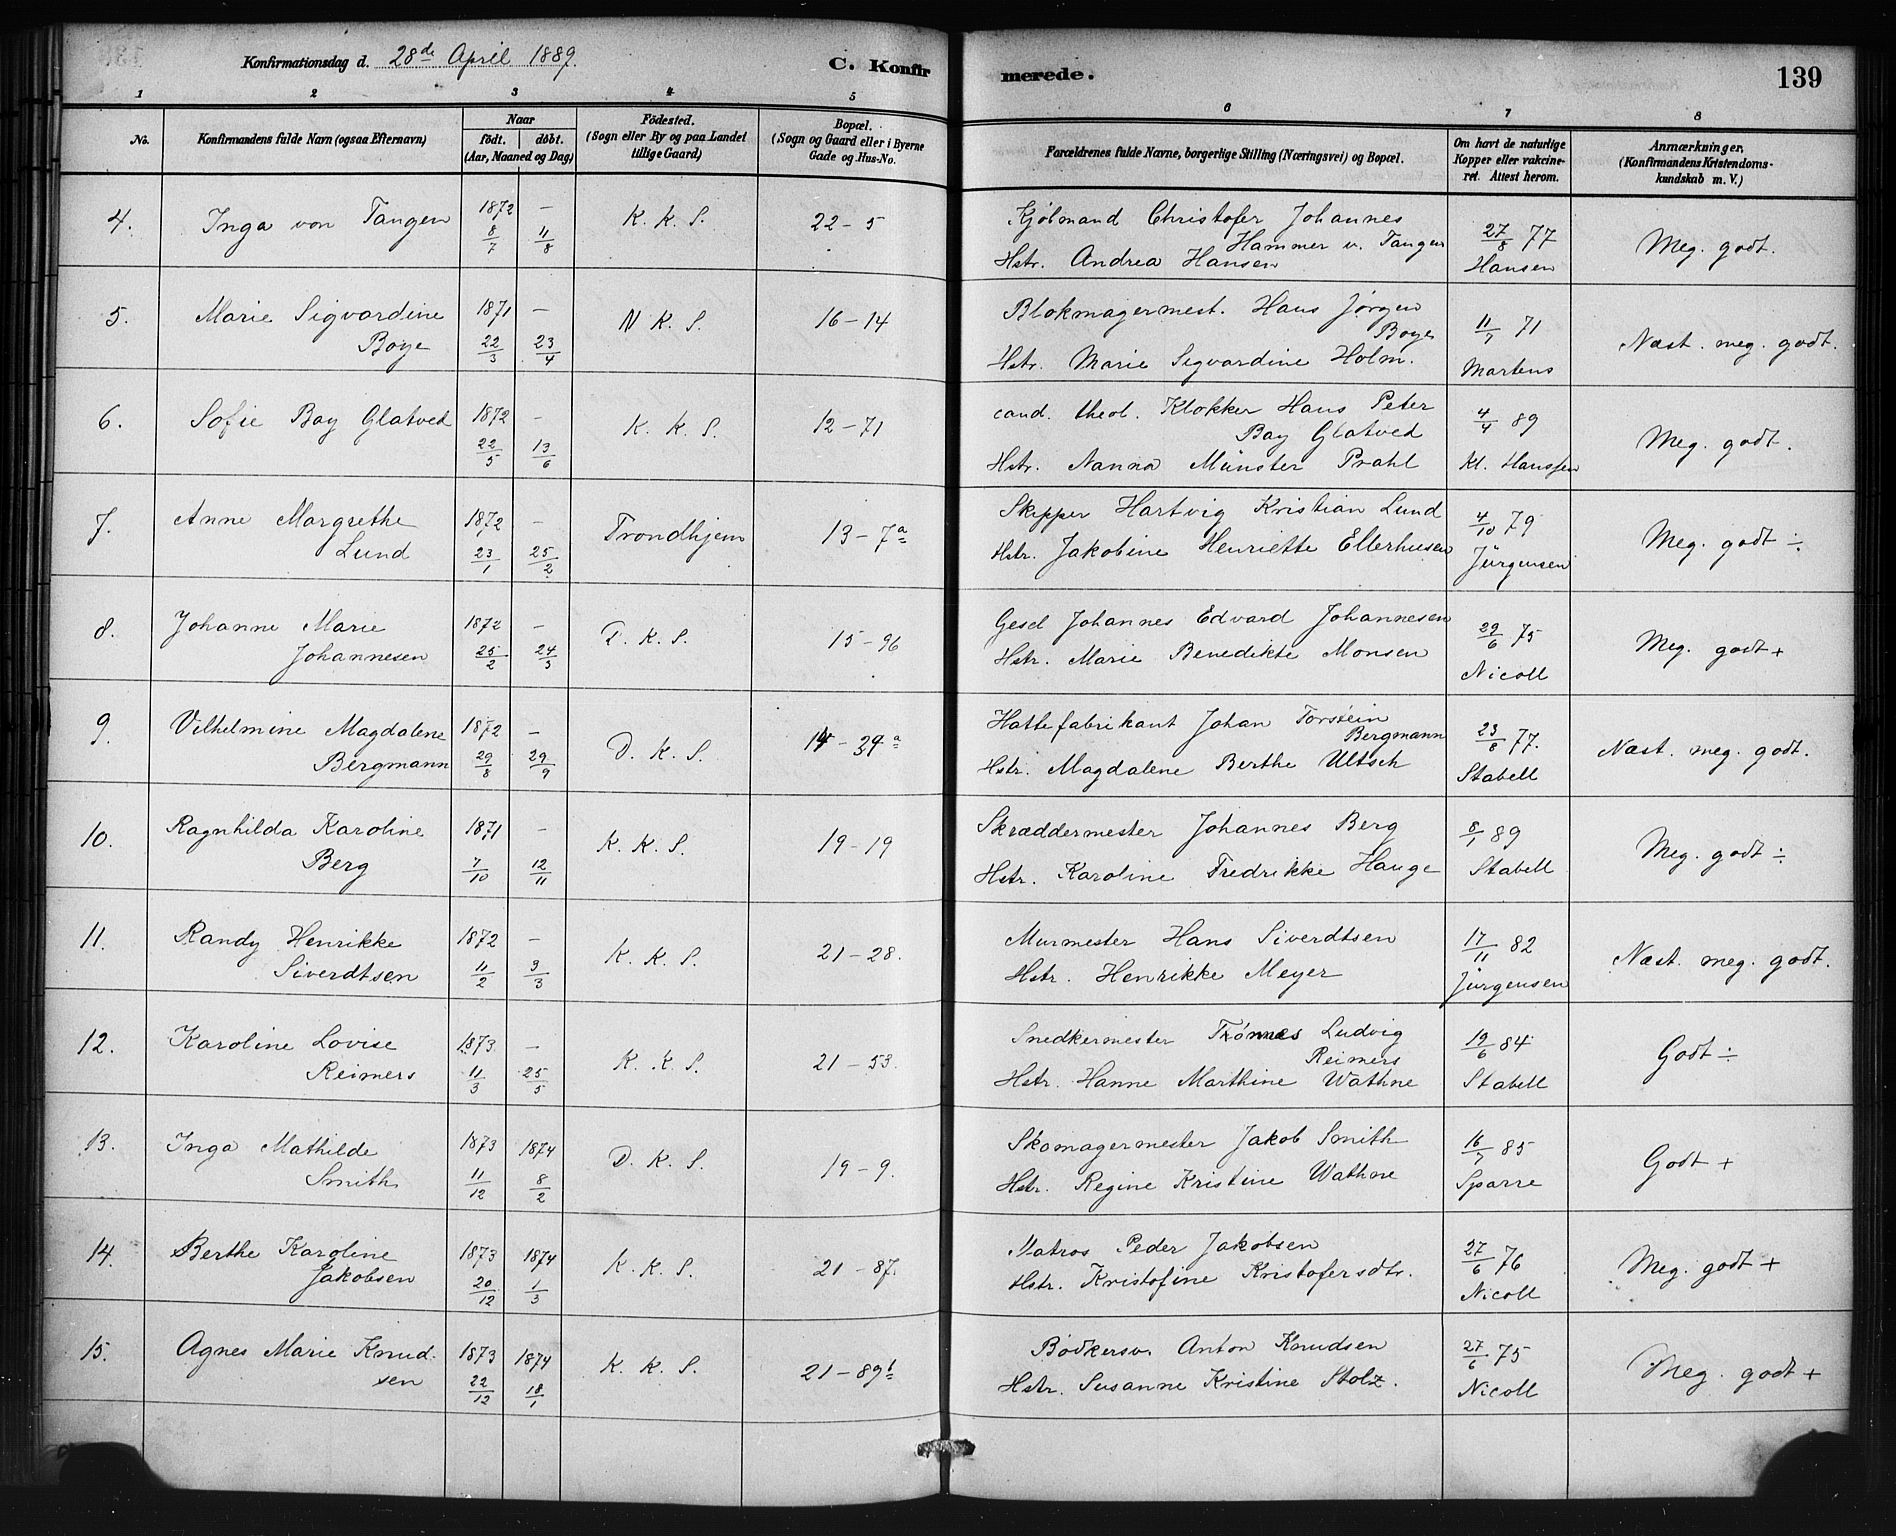 Konfirmationsdag d. 28de April 1889. C. Konfirmerede. 139
1 2 3 4 5 6 7 8
No. Konfirmandens fulde Navn (ogsaa Efternavn) Naar født. døbt. (Aar, Maaned og Dag) Fødested. (Sogn eller By og paa Landet tillige Gaard) Bopæl. (Sogn og Gaard eller i Byerne Gade og Hus-No. Forældrenes fulde Navne, borgerlige Stilling (Næringsvei) og Bopæl. Om havt de naturlige Kopper eller vakcineret. Attest herom. Anmærkninger. (Konfirmandens Kristendomskundskab m. V.)
4. Inga von Tangen 1872 — K. K. S. 22 – 5 Kjølmand Christofer Johannes 27/8 77 Meg. godt.
8/7 11/8 Hammer v. Tangen
Hstr. Andrea Hansen Hansen
5. Marie Sigvardine 1871 — N K. S. 16 – 14 Blokmagermest. Hans Jørgen 11/7 71 Næst. meg. godt.
Boye 22/3 23/4 Boye
Hstr. Marie Sigvardine Holm. Martens
6. Sofie Bay Glatved 1872 — K. K. S. 12 – 71 cand. theol. Klokker Hans Peter 4/4 89 Meg. godt.
22/5 13/6 Bay Glatved
Hstr. Nanna Münster Prahl Kl. Hanssen
7. Anne Margrethe 1872 — Trondhjem 13 – 7a Skipper Hartvig Kristian Lund 4/10 79 Meg. godt ÷
Lund 23/1 25/2 Hstr. Jakobine Henriette Ellerhusen Jürgensen
8. Johanne Marie 1872 — D. K. S. 15 – 96 Gesel Johannes Edvard Johannesen 29/6 75 Meg. godt +
Johannesen 25/2 24/3 Hstr. Marie Benedikte Monsen Nicoll
9. Vilhelmine Magdalene 1872 — D. K. S. 14 – 24a Hattefabrikant Johan Torstein 23/8 77. Næst. meg. godt.
Bergmann 29/8 29/9 Bergmann
Hstr. Magdalene Berthe Ultsch Stabell
10. Ragnhilda Karoline 1871 — K. K. S. 19 – 19 Skræddermester Johannes Berg 8/1 89 Meg. godt ÷
Berg 7/10 12/11 Hstr. Karoline Fredrikke Hauge Stabell
11. Randy Henrikke 1872 — K. K. S. 21 – 28. Murmester Hans Siverdtsen 17/11 82 Næst. meg. godt.
Siverdtsen 11/2 3/3 Hstr. Henrikke Meyer Jürgensen
12. Karoline Lovise 1873 — K. K. S. 21 – 53. Snedkermester Tønnes Ludvig 19/6 84 Godt ÷
Reimers 11/3 25/5 Reimers
Hstr. Hanne Marthine Wathne Stabell
13. Inga Mathilde 1873 1874 D. K. S. 19 – 9. Skomagermester Jakob Smith 16/7 85 Godt +
Smith 11/12 8/2 Hstr. Regine Kristine Wathne Sparre
14. Berthe Karoline 1873 1874 K. K. S. 21 – 87. Matros Peder Jakobsen 27/6 76 Meg. godt +
Jakobsen 20/12 1/3 Hstr. Kristofine Kristofersdtr. Nicoll
15. Agnes Marie Knud- 1873 1874 K. K. S. 21 – 89b Bødkersv. Anton Knudsen 27/6 75 Meg. godt +
sen 22/12 18/1 Hstr. Susanne Kristine Stolz. Nicoll